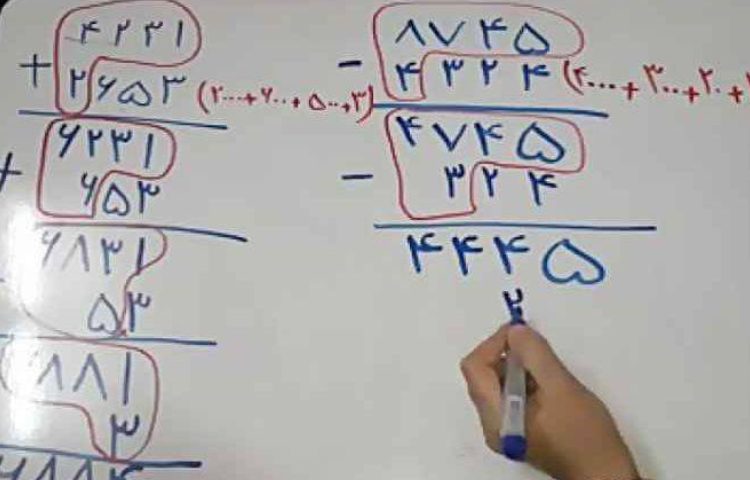 ۴۲۳۱
+ ۲۶۵۳ (۲۰۰۰+۶۰۰+۵۰+۳)
۶۲۳۱
+ ۶۵۳
۶۸۳۱
۵۳
۸۸۱
۳
۶۸۸۴
۸۷۴۵
- ۴۳۲۴ (۴۰۰۰+۳۰۰+۲۰+
۴۷۴۵
- ۳۲۴
۴۴۴۵
۲